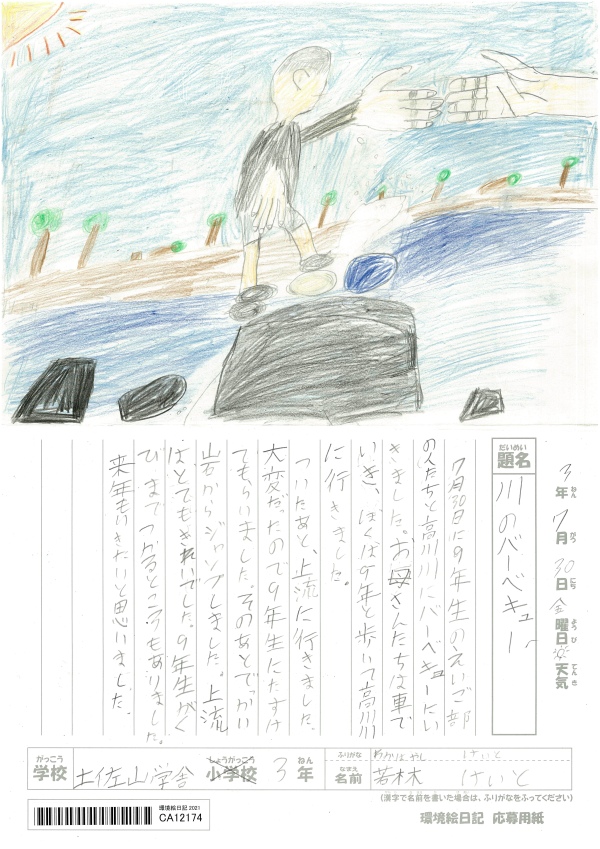 3年 7月 30日 金曜日 天気
ねん がつ にち ようび てんき
だいめい
題名
川のバーベキュー
7月30日に9年生のえいご部
の人たちと高川川にバーベキューにい
きました。お母さんたちは車で
いき、ぼくは9年と歩いて高川川
に行きました。
ついたあと、上流に行きました。
大変だったので9年生にたすけ
てもらいました。そのあとでっかい
岩からジャンプしました。上流
はとてもきれいでした。9年生がく
びまでつかるところもありました。
来年もいきたいと思いました。
がっこう しょうがっこう ねん
学校 土佐山学舎 小学校 3年
ふりがな わかばやし けいと
なまえ
名前 若林 けいと
(漢字で名前を書いた場合は、ふりがなをふってください)
環境絵日記 2021
CA12174
環境絵日記 応募用紙